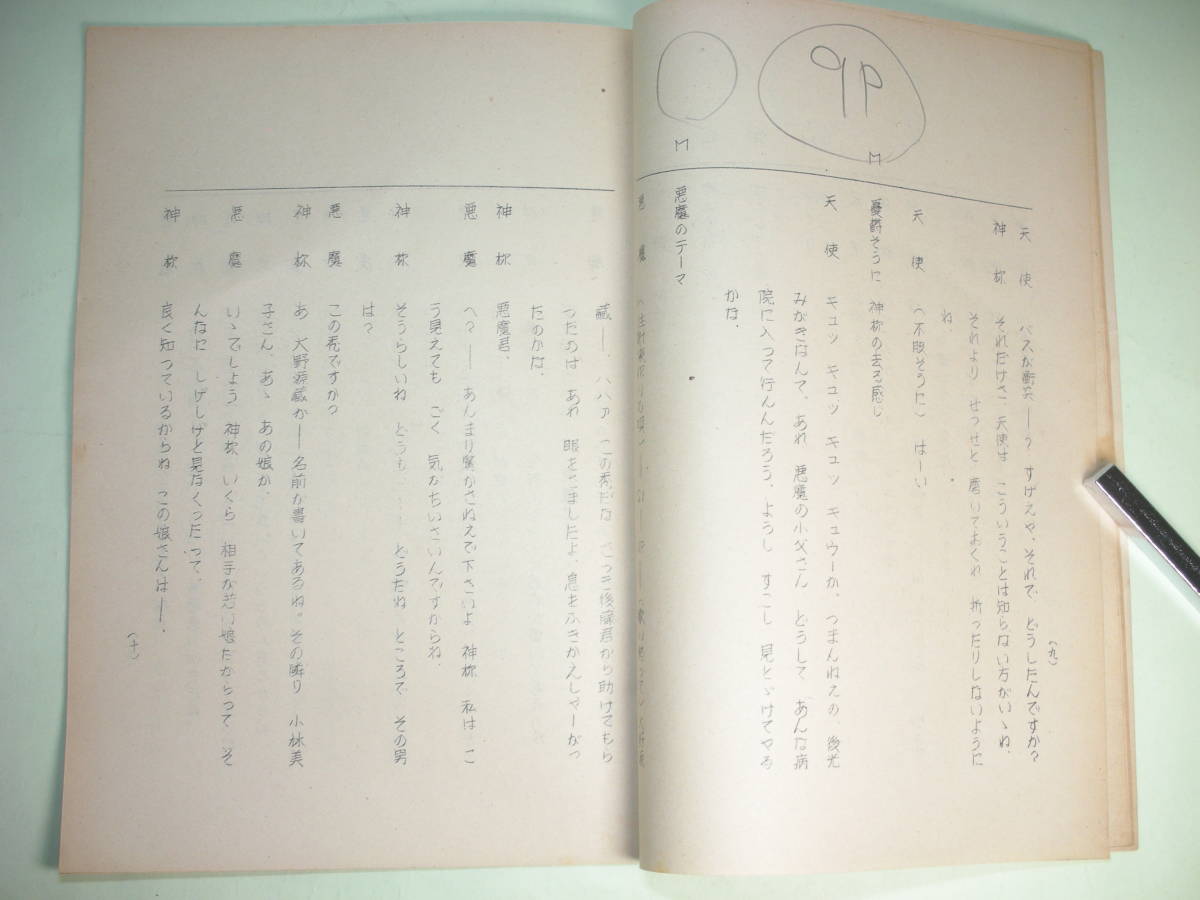 9P
M
M
天使 バスが衝突——？ すげえや、それで、どうしたんですか？
神様 それだけさ、天使は こういうことは知らない方がいゝね、
それより せっせと 磨いておくれ 折ったりしないように
ね、
天使 （不服そうに） はーい
憂鬱そうに 神様の去る感じ
天使 キュッ キュッ キュッ キュウーか、つまんねえの、後光
みがきなんて、あれ 悪魔の小父さん どうして あんな病
院に入って行くんだろう、ようし すこし 見とゞけてやる
かな、
悪魔のテーマ
（九）
悪魔
蔵——、ハハア この禿だな さっき後藤君から助けてもら
ったのは あれ 眼をさましたよ、息をふきかえしゃーがっ
たのかな、
神様 悪魔君、
悪魔 へ？——あんまり驚かさねえで下さいよ 神様 私は こ
う見えても ごく 気がちいさいんですからね、
神様 そうらしいね どうも……？ どうだね ところで その男
は？
悪魔 この禿ですか？
神様 あゝ 大野源蔵か——名前が書いてあるね。その隣り 小林美
子さん、あゝ あの娘か、
悪魔 いゝでしょう 神様 いくら 相手が若い娘だからって そ
んなに しげしげと見なくったって、
神様 良く知っているからね この娘さんは——、
（十）